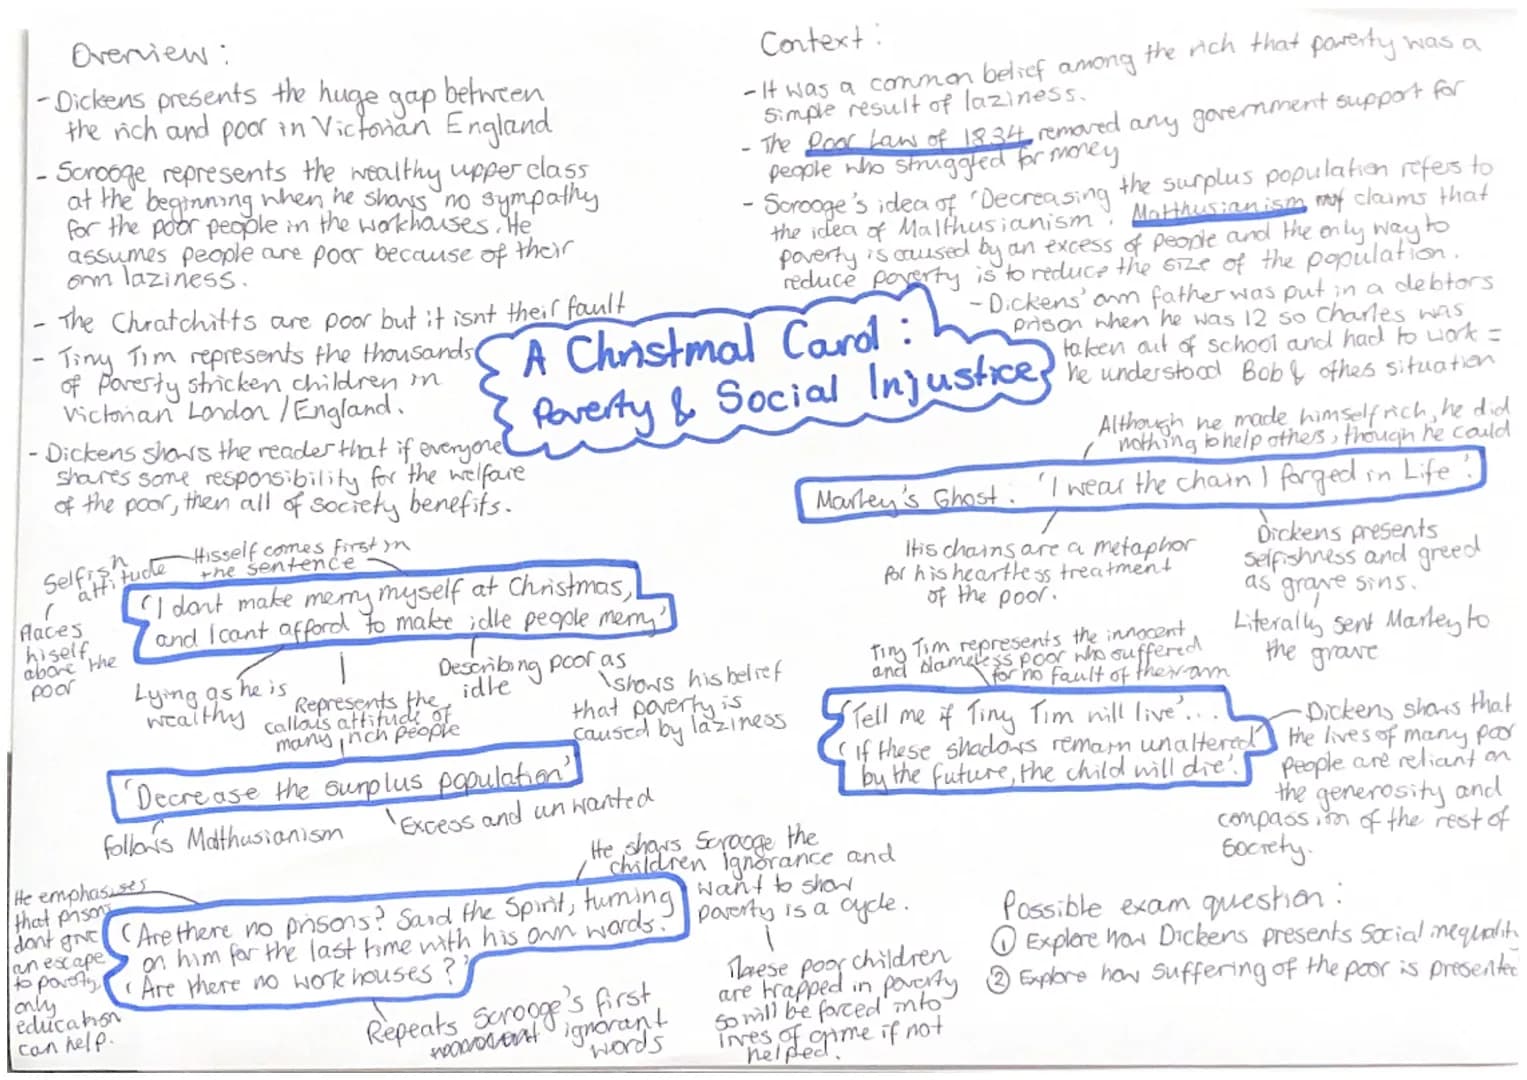 Overview :
- Dickens presents the huge gap between
the rich and poor in Victorian England
- Scrooge represents the wealthy upper class
at the beginning when he shows no sympathy
for the poor people in the workhouses. He
assumes people are poor because of their
own laziness.
- The Chratchitts are poor but it isnt their fault
- Tiny Tim represents the thousands
of poverty stricken children in
Victorian London / England.
- Dickens shows the reader that if everyone
shares some responsibility for the welfare
of the poor, then all of society benefits.
Context :
- It was a common belief among the rich that poverty was a
simple result of laziness.
- The Poor Law of 1834 removed any government support for
people who struggled for money
- Scrooge's idea of 'Decreasing the surplus population refers to
the idea of Malthusianism. Malthusianism claims that
poverty is caused by an excess of people and the only way to
reduce poverty is to reduce the size of the population.
- Dickens' own father was put in a debtors
prison when he was 12 so Charles was
taken out of school and had to work =
he understood Bob & othes situation
A Christmal Carol :
Poverty & Social Injustice
Although he made himself rich, he did
nothing to help others, though he could
Marley's Ghost. 'I wear the chain I forged in Life'.
His chains are a metaphor
for his heartless treatment
of the poor.
Dickens presents
selfishness and greed
as grave sins.
Literally sent Marley to
the grave
Selfish
attitude
Hisself comes first in
the sentence
Places
hiself
above the
poor
'I dont make merry myself at Christmas,
and I cant afford to make idle people merry'
Lying as he is
wealthy
Represents the
callous attitude of
many rich people
Describing poor as
idle
shows his belief
that poverty is
caused by laziness
'Decrease the surplus population'
follows Malthusianism
Excess and unwanted
Tiny Tim represents the innocent
and blameless poor who suffered
for no fault of their own
'Tell me if Tiny Tim will live'...
'if these shadows remain unaltered
by the future, the child will die'.
Dickens shows that
the lives of many poor
people are reliant on
the generosity and
compassion of the rest of
society.
He emphasises
that prisons
dont give
an escape
to poverty,
only
education
can help.
'Are there no prisons? Said the Spirit, turning
on him for the last time with his own words.
'Are there no workhouses?'
Repeats Scrooge's first
ignorant
words
He shows Scrooge the
children Ignorance and
Want to show
poverty is a cycle.
These poor children
are trapped in poverty
so will be forced into
lives of crime if not
helped.
Possible exam question :
① Explore how Dickens presents Social inequality
② Explore how suffering of the poor is presented